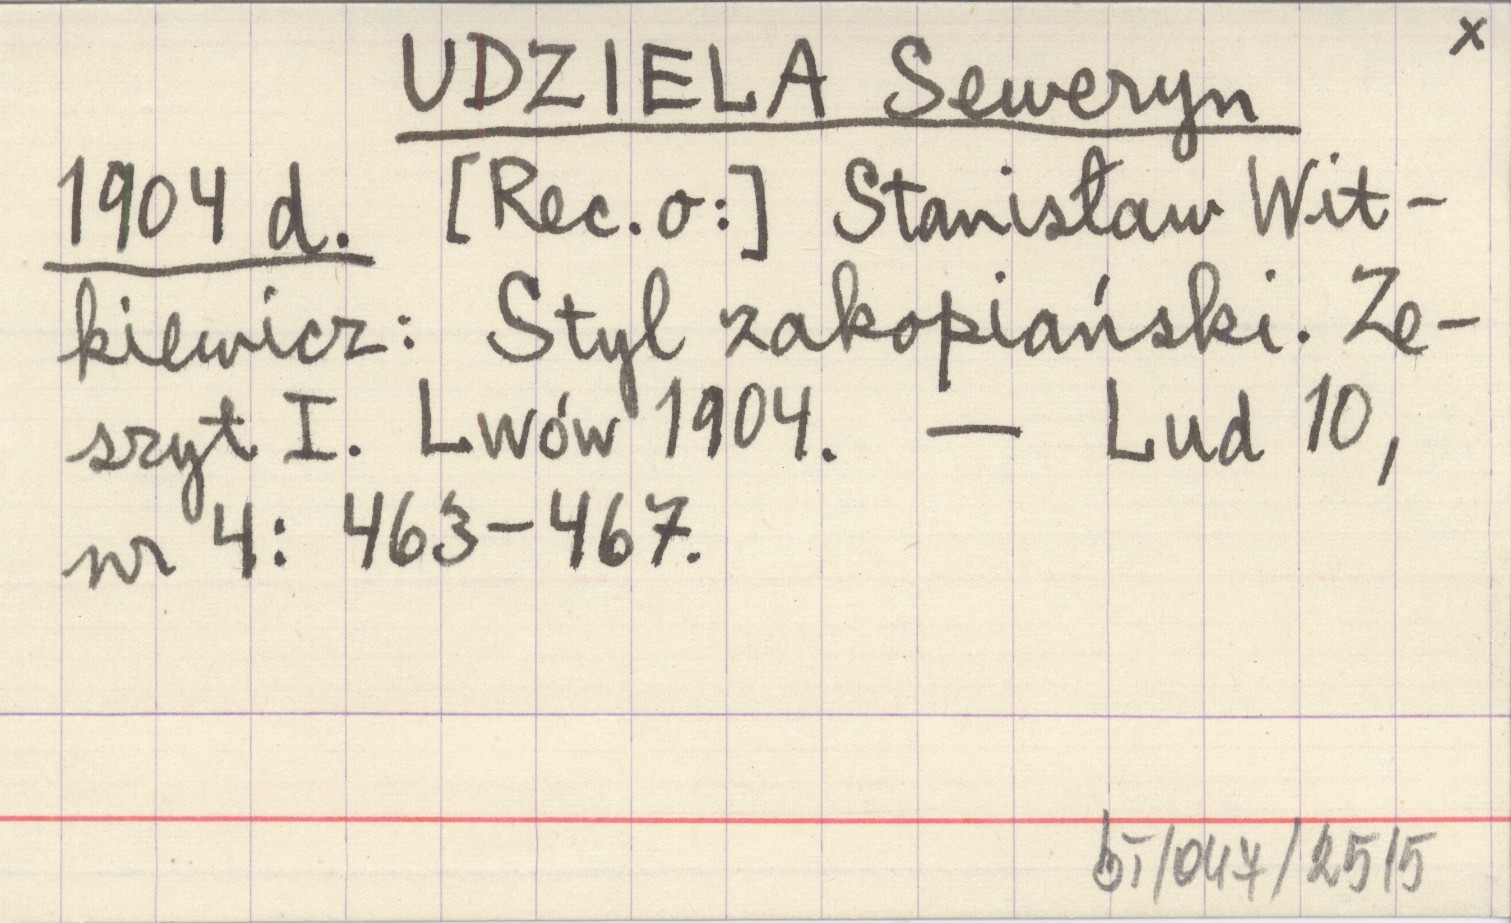 x
UDZIELA Seweryn
1904 d. [Rec. o:] Stanisław Wit-
kiewicz: Styl zakopiański. Ze-
szyt I. Lwów 1904. — Lud 10,
nr 4: 463-467.
bI/047/2515